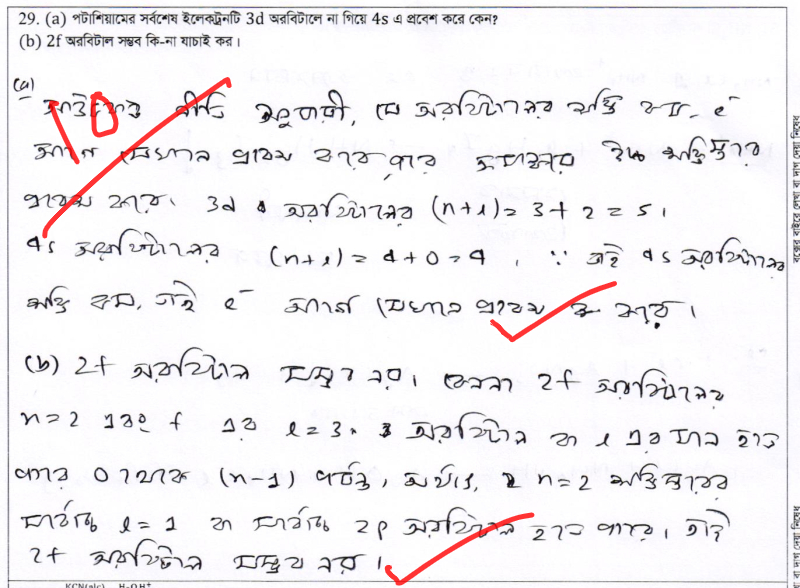 29. (a) পটাশিয়ামের সর্বশেষ ইলেকট্রনটি 3d অরবিটালে না গিয়ে 4s এ প্রবেশ করে কেন?
(b) 2f অরবিটাল সম্ভব কি-না যাচাই কর।
(a)
নীতি অনুযায়ী, যে অরবিটালের শক্তি কম, e⁻
আগে সেখানে প্রবেশ করে পরে উচ্চ শক্তিস্তরে
প্রবেশ করে। 3d অরবিটালের (n+l) = 3+2 = 5।
4s অরবিটালের (n+l) = 4+0 = 4, ∵ তাই 4s অরবিটালের
শক্তি কম, তাই e⁻ আগে সেখানে প্রবেশ করে।
(b) 2f অরবিটাল সম্ভব নয়। কেননা 2f অরবিটালের
n=2 এবং f এর l=3। অরবিটাল বা l এর মান হতে
পারে 0 থেকে (n-1) পর্যন্ত, অর্থাৎ, n=2 শক্তিস্তরের
সর্বোচ্চ l=1 বা সর্বোচ্চ 2p অরবিটাল হতে পারে। তাই
2f অরবিটাল সম্ভব নয়।
10
বক্সের বাইরে লেখা বা দাগ দেয়া নিষেধ
বা দাগ দেয়া নিষেধ
KCN(alc) H-OH⁺